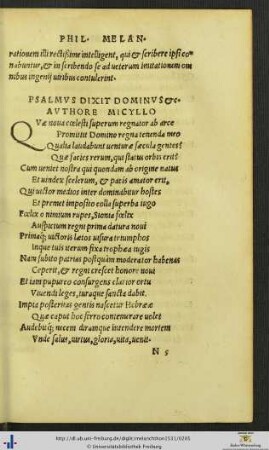 PHIL. MELAN.
rationem illi rectissime intelligent, qui & scribere ipsi co
nabuntur, & in scribendo se ad ueterum imitationem om
nibus ingenij uiribus contulerint.
PSALMVS DIXIT DOMINVS &c.
AVTHORE MICYLLO
QVæ noua cœlesti superum regnator ab arce
Promittit Domino regna tenenda meo
Qualia laudabunt uenturæ sæcula gentes?
Quæ facies rerum, qui status orbis erit?
Cum ueniet nostra qui quondam ab origine natus
Et uindex scelerum, & pacis amator erit,
Qui uector medios inter dominabitur hostes
Et premet imposito colla superba iugo
Fœlix o nimium rupes, Sionia fœlix
Auspicium regni prima datura noui
Primaq; uictoris lætos uisura triumphos
Inque tuis uerum fixa trophæa iugis
Nam subito patrias postquam moderator habenas
Ceperit, & regni crescet honore noui
Et iam pupureo consurgens clarior ortu
Viuendi leges, iuraque sancta dabit.
Impia posteritas gentis nascetur Hebrææ
Quæ caput hoc ferro contemerare uolet
Audebitq; necem diramque intendere mortem
Vnde salus, uirtus, gloria, uita, uenit.
N 5
http://dl.ub.uni-freiburg.de/diglit/melanchthon1531/0205
© Universitätsbibliothek Freiburg
Baden-Württemberg